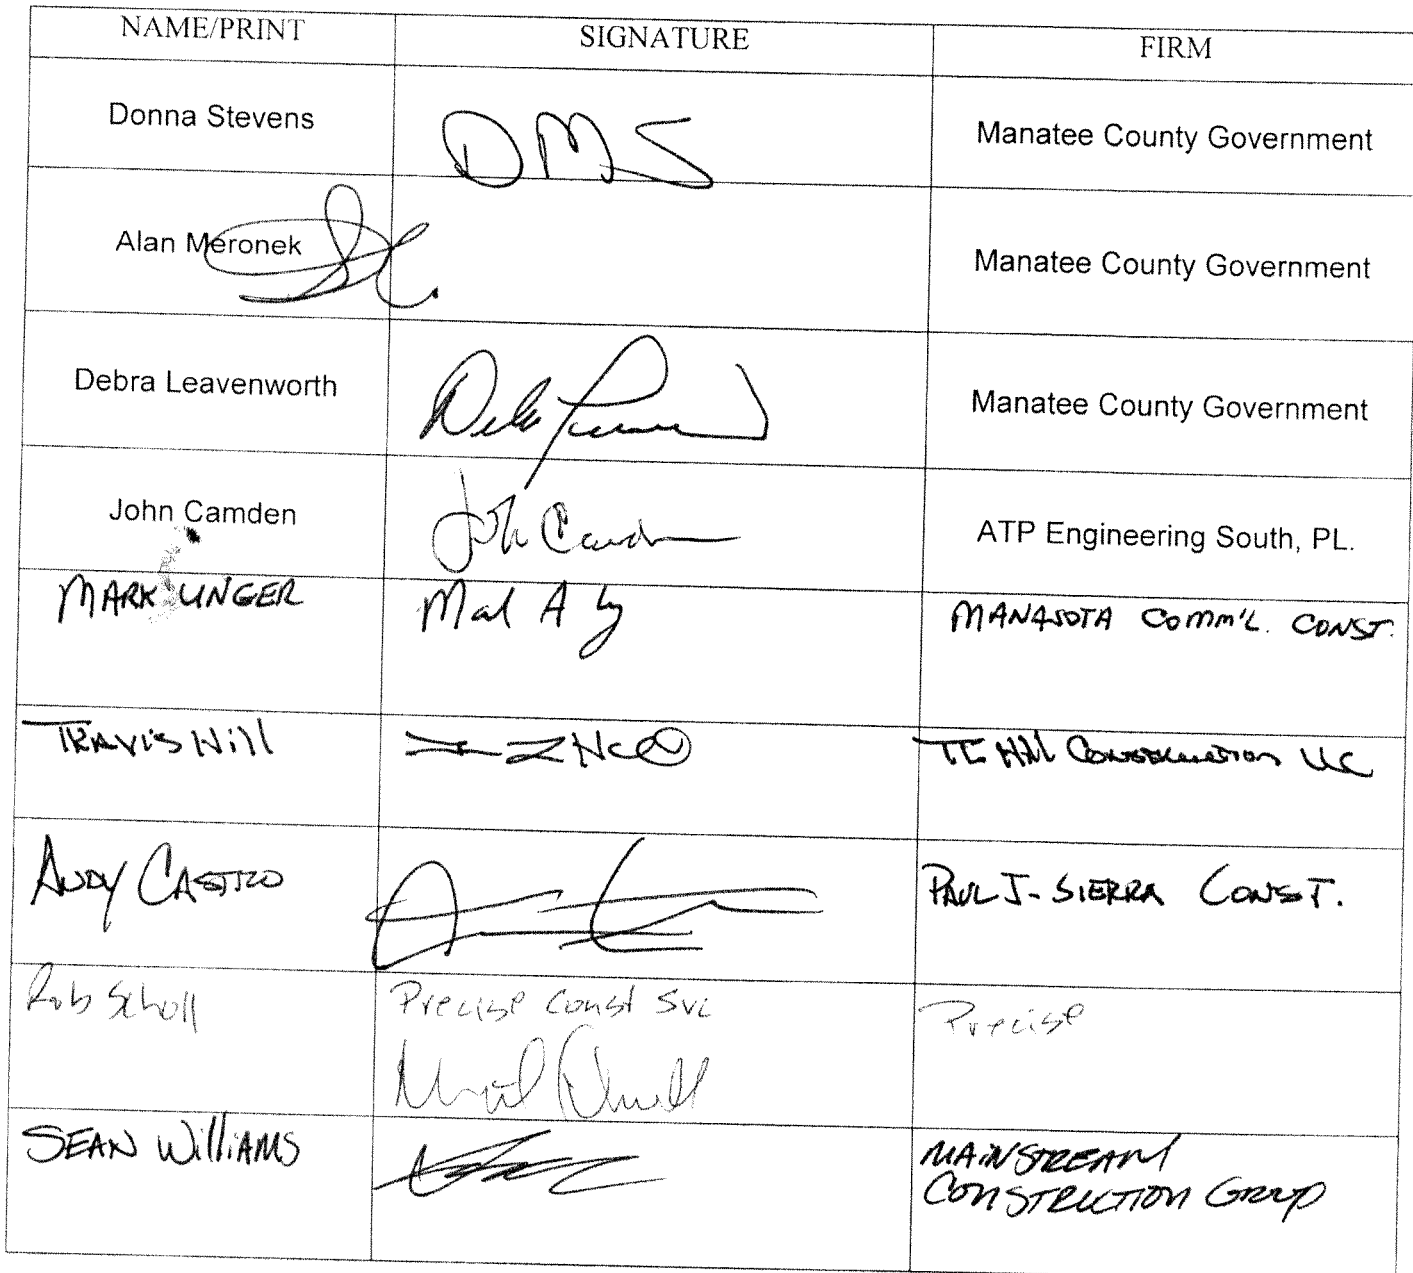 NAME/PRINT SIGNATURE FIRM
Donna Stevens DMS Manatee County Government
Alan Meronek Manatee County Government
Debra Leavenworth Manatee County Government
John Camden John Camden ATP Engineering South, PL.
MARK UNGER MANASOTA COMM'L. CONST.
TRAVIS Hill CONSTRUCTION LLC
ANDY CASTRO PAUL J. SIERRA CONST.
Rob Scholl Precise Const Svc Precise
SEAN WilliAMS MAINSTREAM
CONSTRUCTION GROUP